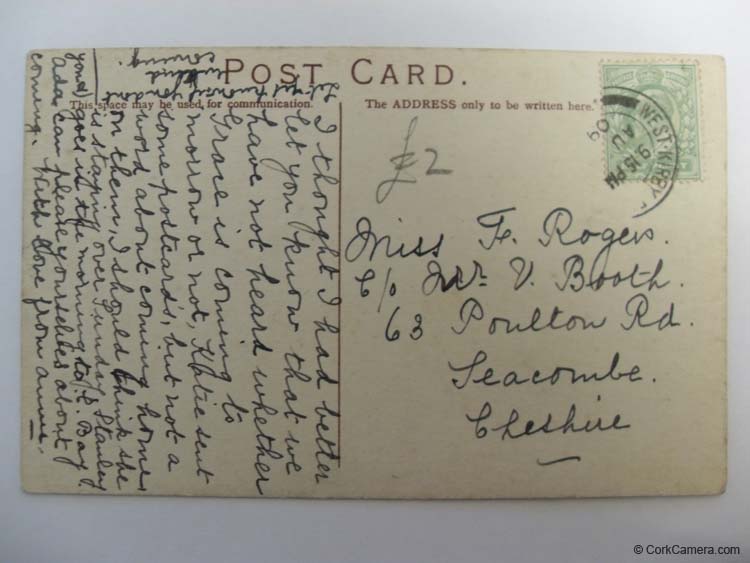 POST CARD.
This space may be used for communication.
The ADDRESS only to be written here.
I thought I had better
let you know that we
have not heard whether
Grace is coming to
morrow or not, Katie sent
some postcards, but not a
word about coming home
on them, I should think she
is staying over Sunday Stanley
goes in the morning to C. Bay
you & Ada can please yourselves about
coming. With love from Annie.
coming.
£2
WEST KIRBY
9.15 PM
AU
09
Miss F. Rogers.
c/o Mr. V. Booth.
63 Poulton Rd.
Seacombe.
Cheshire
© CorkCamera.com